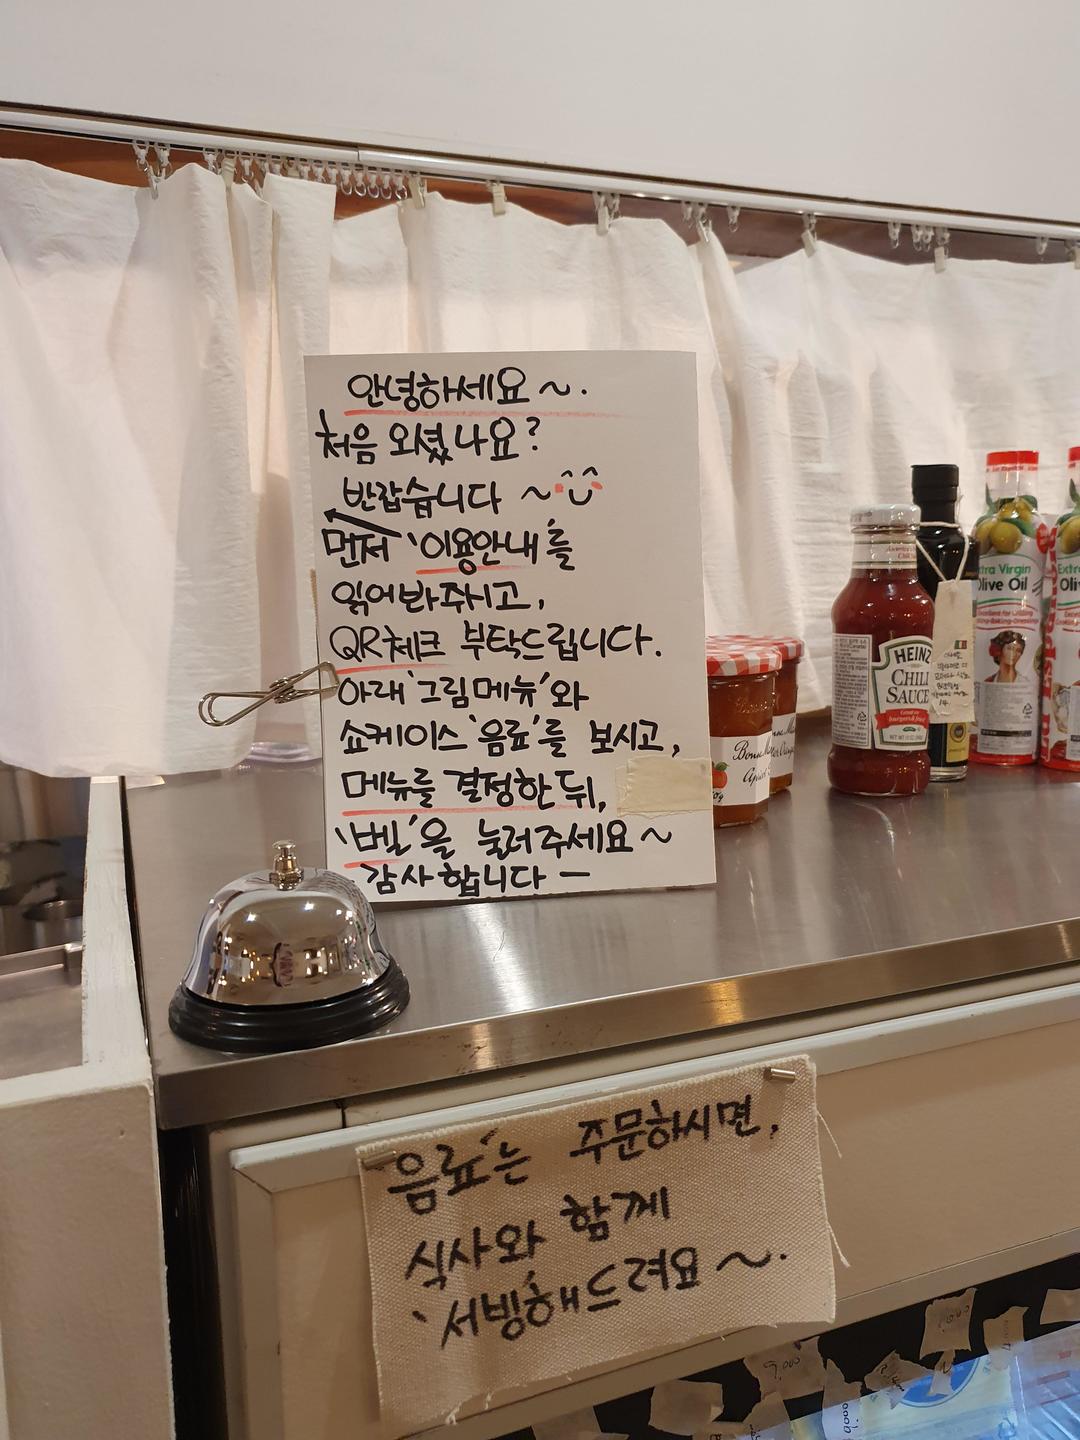 안녕하세요 ~.
처음 오셨나요?
반갑습니다 ~
먼저 '이용안내'를
읽어봐주시고,
QR체크 부탁드립니다.
아래 '그림메뉴'와
쇼케이스 '음료'를 보시고,
메뉴를 결정한 뒤,
'벨'을 눌러주세요~
감사합니다 —
'음료'는 주문하시면,
식사와 함께
'서빙'해드려요 ~.
HEINZ
CHILI
SAUCE
Extra Virgin
Olive Oil
Bonne